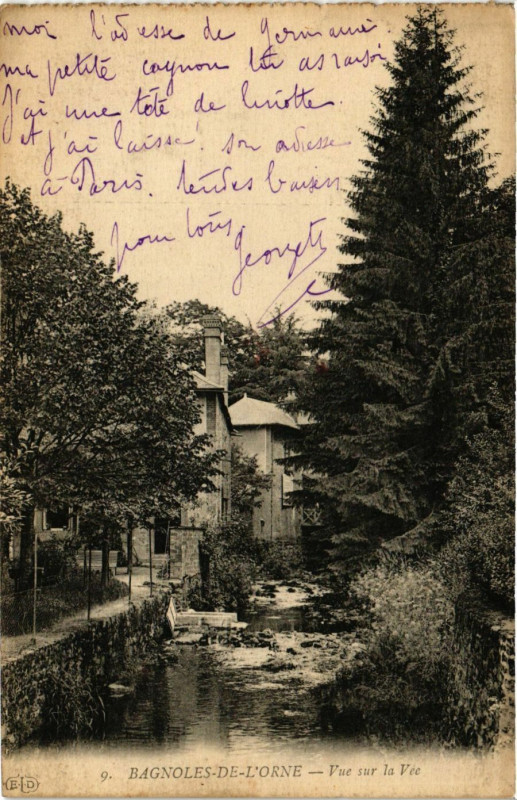 moi l'adresse de Germaine
ma petite
J'ai une tête de linotte.
et j'ai laissé son adresse
à Paris. Tendes baisers
pour tous
Georgette
9. BAGNOLES-DE-L'ORNE — Vue sur la Vée
E.D